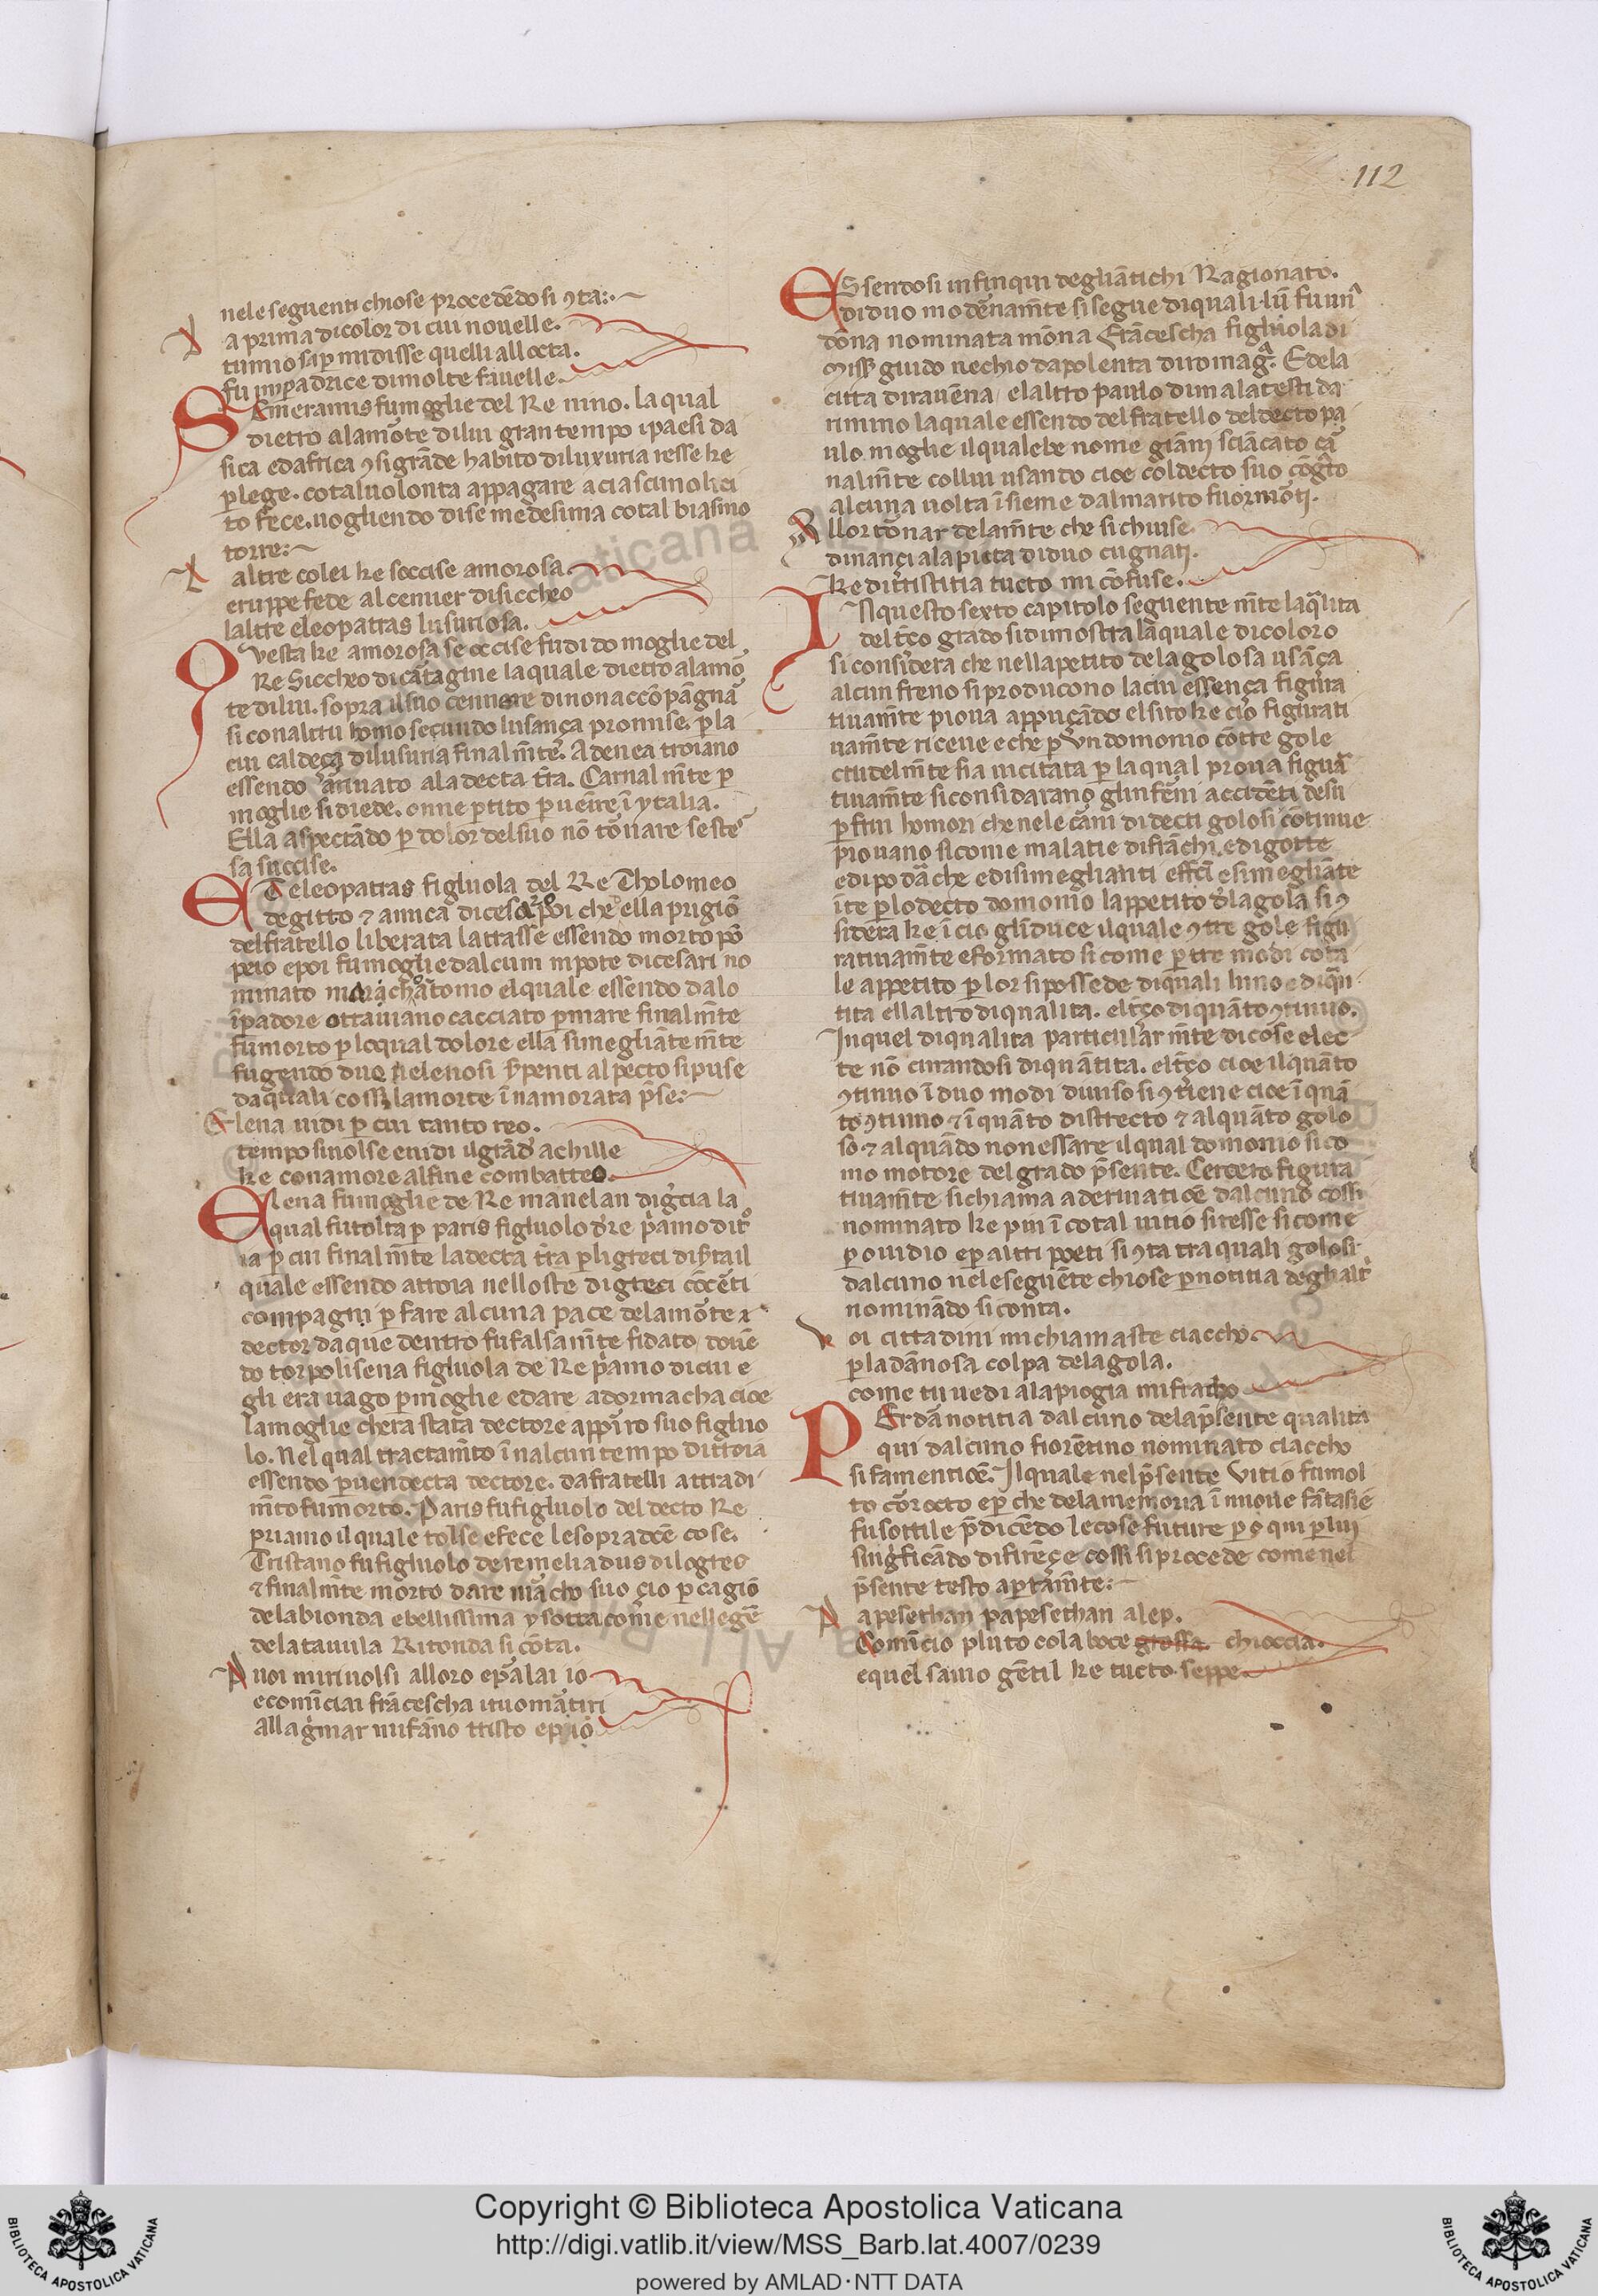 112
nele seguenti chiose procedēdo si ꝯta:·~
La prima di color di cui nouelle.
tu uuo saꝑ mi disse quelli all octa.
fu imꝑadrice di molte fauelle.
SEmeramis fu moglie del Re nino. la qual
dietro ala mōte di lui gran tempo i paesi da
sica ed africa ꝯ si grāde habito di luxuria resse ke
ꝑ lege. cotal uolonta appagare a ciascuno lici
to fece. uogliendo di se medesima cotal biasmo
torre:~
Laltre colei ke soccise amorosa
e ruppe fede al cenner di siccheo
laltre cleopatras lusuriosa.
Questa ke amorosa se occise fu dido moglie del
Re Siccheo di cartagine la quale dietro ala mo
te di lui. sopra il suo cennere di non accōpāgna
si con altru homo secundo lusança promise. ꝑ la
cui caldeça di lusuria final mēte. Ad enea troiano
essendo ariuato ala decta tr̄a. Carnal mēte ꝑ
moglie si diede. onne ꝑtito ꝑ uenire ī ytalia.
Ella aspectādo ꝑ dolor del suo nō tornare se ste
sa succise.
ET cleopatras figluola del Re Tholomeo
degitto ⁊ amica di cesar poi che ella prigiō
del fratello liberata la trasse essendo morto pō
peio e poi fu moglie dalcun nipote di cesari no
minato marchantonio el quale essendo dalo
īpadore ottauiano cacciato ꝑ mare final mēte
fu morto ꝑ lo qual dolore ella simegliāte mēte
fugendo due uelenosi serpenti al pecto si puse
da quali cossi la morte īnamorata prese:~
Elena uidi ꝑ cui tanto reo.
tempo si uolse e uidi il grāde achille
ke con amore al fine combatteo.
Elena fu moglie de Re manelan di grecia la
qual fu tolta ꝑ paris figluolo de re priamo di tro
ia ꝑ cui final mēte la decta tr̄a ꝑ li greci disfatta il
quale essendo a troia nelloste di greci cō certi
compagni ꝑ fare alcuna pace dela mōte
dector da que dentro fu falsa mēte fidato douē
do tor polisena figluola de Re priamo di cui e
gli era uago ꝑ moglie e dare adormacha cioe
la moglie chera stata dectore a ppirro suo figluo
lo. Nel qual tractamēto ī nalcun tempo di troia
essendo ꝑ uendecta dectore. da fratelli a tradi
mēto fu morto. Paris fu figluolo del decto Re
priamo il quale tolse e fece le sopra dēe cose.
Tristano fu figluolo de re meliadus di logres
⁊ final mēte morto dare marcho suo çio ꝑ cagiō
dela bionda e bellissima ysotta come nel legē
de la tauula Ritonda si cōta.
Puoi mi riuolsi alloro e parlai io
e comīciai frācescha i tuo martiri
al lagrimar mi fāno tristo e pio
ESsendosi infin qui degli ātichi Ragionato.
di duo moderna mēte si segue di quali lū fu una
dōna nominata mōna Frācescha figluola di
Miss̄ guido uechio da polenta di romagna. E dela
citta di rauēna. e laltro paulo di malatesti da
rimino la quale essendo del fratello del decto pa
ulo moglie il quale ebe nome giāni sciācato car
nal mēte col lui usando cioe col decto suo cognato
alcuna uolta īsieme dal marito fuor morti.
Al lor tornar dela mēte che si chiuse.
dinançi ala pieta di duo cugnati.
ke di tristitia tucto mi cōfuse.
IN questo sexto capitolo seguente mēte la qualita
del terço grado si dimostra la quale di coloro
si considera che nell apetito dela golosa usāça
alcun freno si producono la cui essença figura
tiua mēte piona appuçādo el sito ke cio figurati
ua mēte riceue e che ꝑ un domonio cō tre gole
crudel mēte sia incitata ꝑ la qual proua figura
tiua mēte si considarano gli infermi accidēti de su
ꝑ flui homori che nele carni di decti golosi cōtinue
piouano si come malatie di fiāchi e di gotte
e di podāche e di simeglianti effecti e simegliāte
m̄te ꝑ lo decto domonio lappetito de la gola si ꝯ
sidera ke ī cio gli īduce il quale ꝯ tre gole figu
ratiua mēte e formato si come ꝑ tre modi cota
le appetito ꝑ lor si possede di quali luno e di quā
tita e l laltro di qualita. el terço di quāto ꝯtinuo.
In quel di qualita particular mēte di cose elec
te nō curandosi di quātita. el terço cioe il quāto
ꝯtinuo ī duo modi diuiso si ꝯtiene cioe ī quā
to ꝯtinuo ⁊ ī quāto distrecto ⁊ alquāto golo
so ⁊ alquādo non essare il qual domonio si co
mo motore del grado presente. Cerbero figura
tiua mēte si chiama a deriuatiōe dalcuno cossi
nominato ke piu ī cotal uitio si resse si come
ꝑ ouidio e ꝑ altri poeti si ꝯta tra quali golosi
dalcuno nele seguēte chiose ꝑ notitia degli altri
nominādo si conta.
Voi cittadini mi chiamaste ciaccho
ꝑ la dānosa colpa dela gola.
come tu uedi ala piogia mi fraccho
PEr dar notitia dalcuno dela presente qualita
qui dalcuno fiorētino nominato ciaccho
si fa mentiōe. Il quale nel presente Vitio fu mol
to corocto e ꝑ che dela memoria ī nuoue fātasie
fu sottile predicēdo le cose future ꝑ o qui ꝑ lui
significādo di firēçe cossi si procede come nel
presente testo aꝑta mēte:~
Papesethan papesethan alep.
Comīcio pluto cola boce grossa chioccia.
e quel sauio gētil ke tucto seppe
Copyright © Biblioteca Apostolica Vaticana
http://digi.vatlib.it/view/MSS_Barb.lat.4007/0239
powered by AMLAD·NTT DATA
BIBLIOTECA APOSTOLICA VATICANA
BIBLIOTECA APOSTOLICA VATICANA